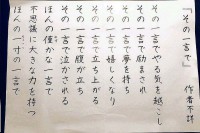 『その一言で』
作者不詳
その一言でやる気を起こし
その一言で励まされ
その一言で夢を持ち
その一言で嬉しくなり
その一言で立ち上がる
その一言で腹が立ち
その一言で泣かされる
ほんの僅かな一言で
不思議に大きな力を持つ
ほんの一寸の一言で